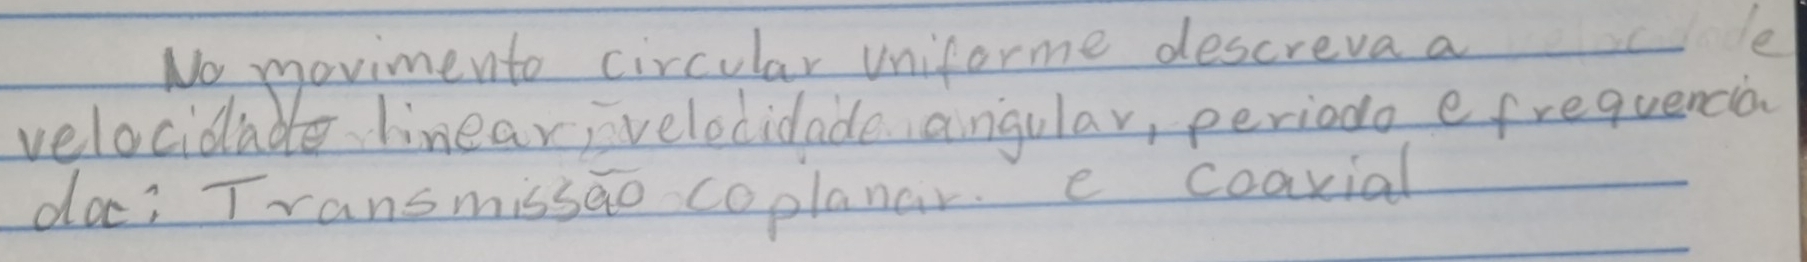 No movimento circular uniforme descreva a
velocidade linear, velocidade angular, periodo e frequencia
da: Transmissão coplanar. e coaxial